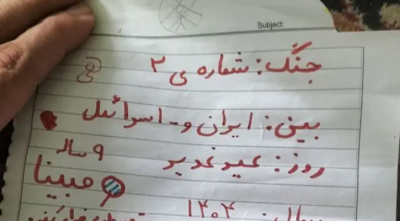 Subject:
جنگ: شماره ی ۲
بین: ایران و - اسرائیل
روز: عید غدیر ۹ ساله
مبینا
سال: ۱۴۰۴